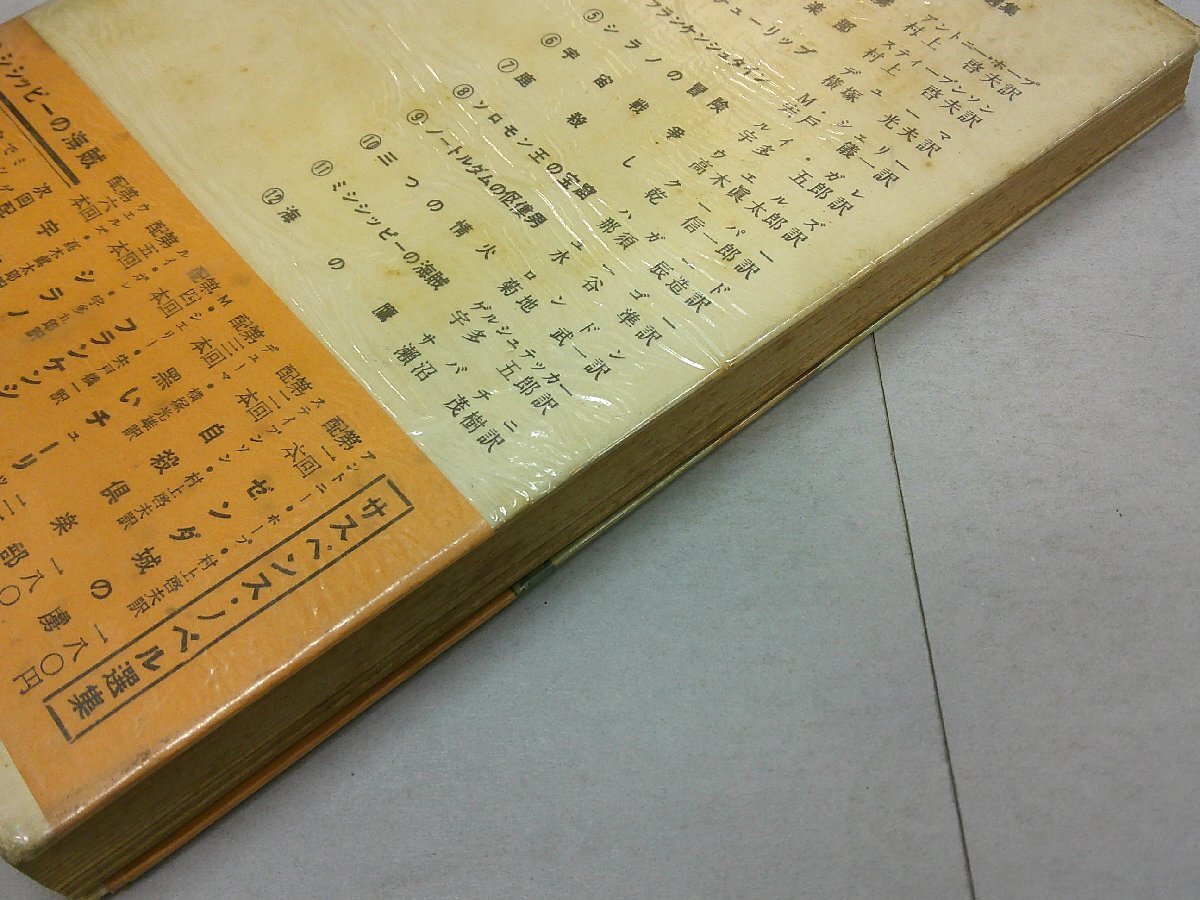 選集
アントニー・ホープ
村上啓夫訳
スティーブンソン
楽部 村上啓夫訳
デューマ
チューリップ 横塚光夫訳
M・シェリー
フランケンシュタイン 宍戸儀一訳
ルイ・ガレ
⑤シラノの冒険 宇多五郎訳
ウェルズ
⑥宇宙戦争 高木眞太郎訳
クーパー
⑦鹿殺し 乾信一郎訳
ハガード
⑧ソロモン王の宝窟 那須辰造訳
ユーゴー
⑨ノートルダムの傴僂男 水谷準訳
ロンドン
⑩三つの情火 菊地武一訳
ゲルシュテッカー
⑪ミシシッピーの海賊 宇多五郎訳
サバチニ
⑫海の鷹 瀬沼茂樹訳
サスペンス・ノベル選集
第一回配本 アントニー・ホープ・村上啓夫訳
ゼンダ城の 一八〇円
第二回配本 スティブンソン・村上啓夫訳
自殺倶楽部 一八〇
第三回配本 デューマ・横塚光雄訳
黒いチューリッ
第四回配本 M・シェリー・宍戸儀一訳
フランケンシ
第五回配本 ルイ・ガレ・宇多五郎訳
シラノ
第六回配本 ウェルズ・高木
宇
次回配
シシッピーの海賊